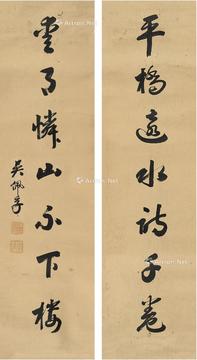 平橋遠水詩千卷
盡日憐山不下樓
吳佩孚